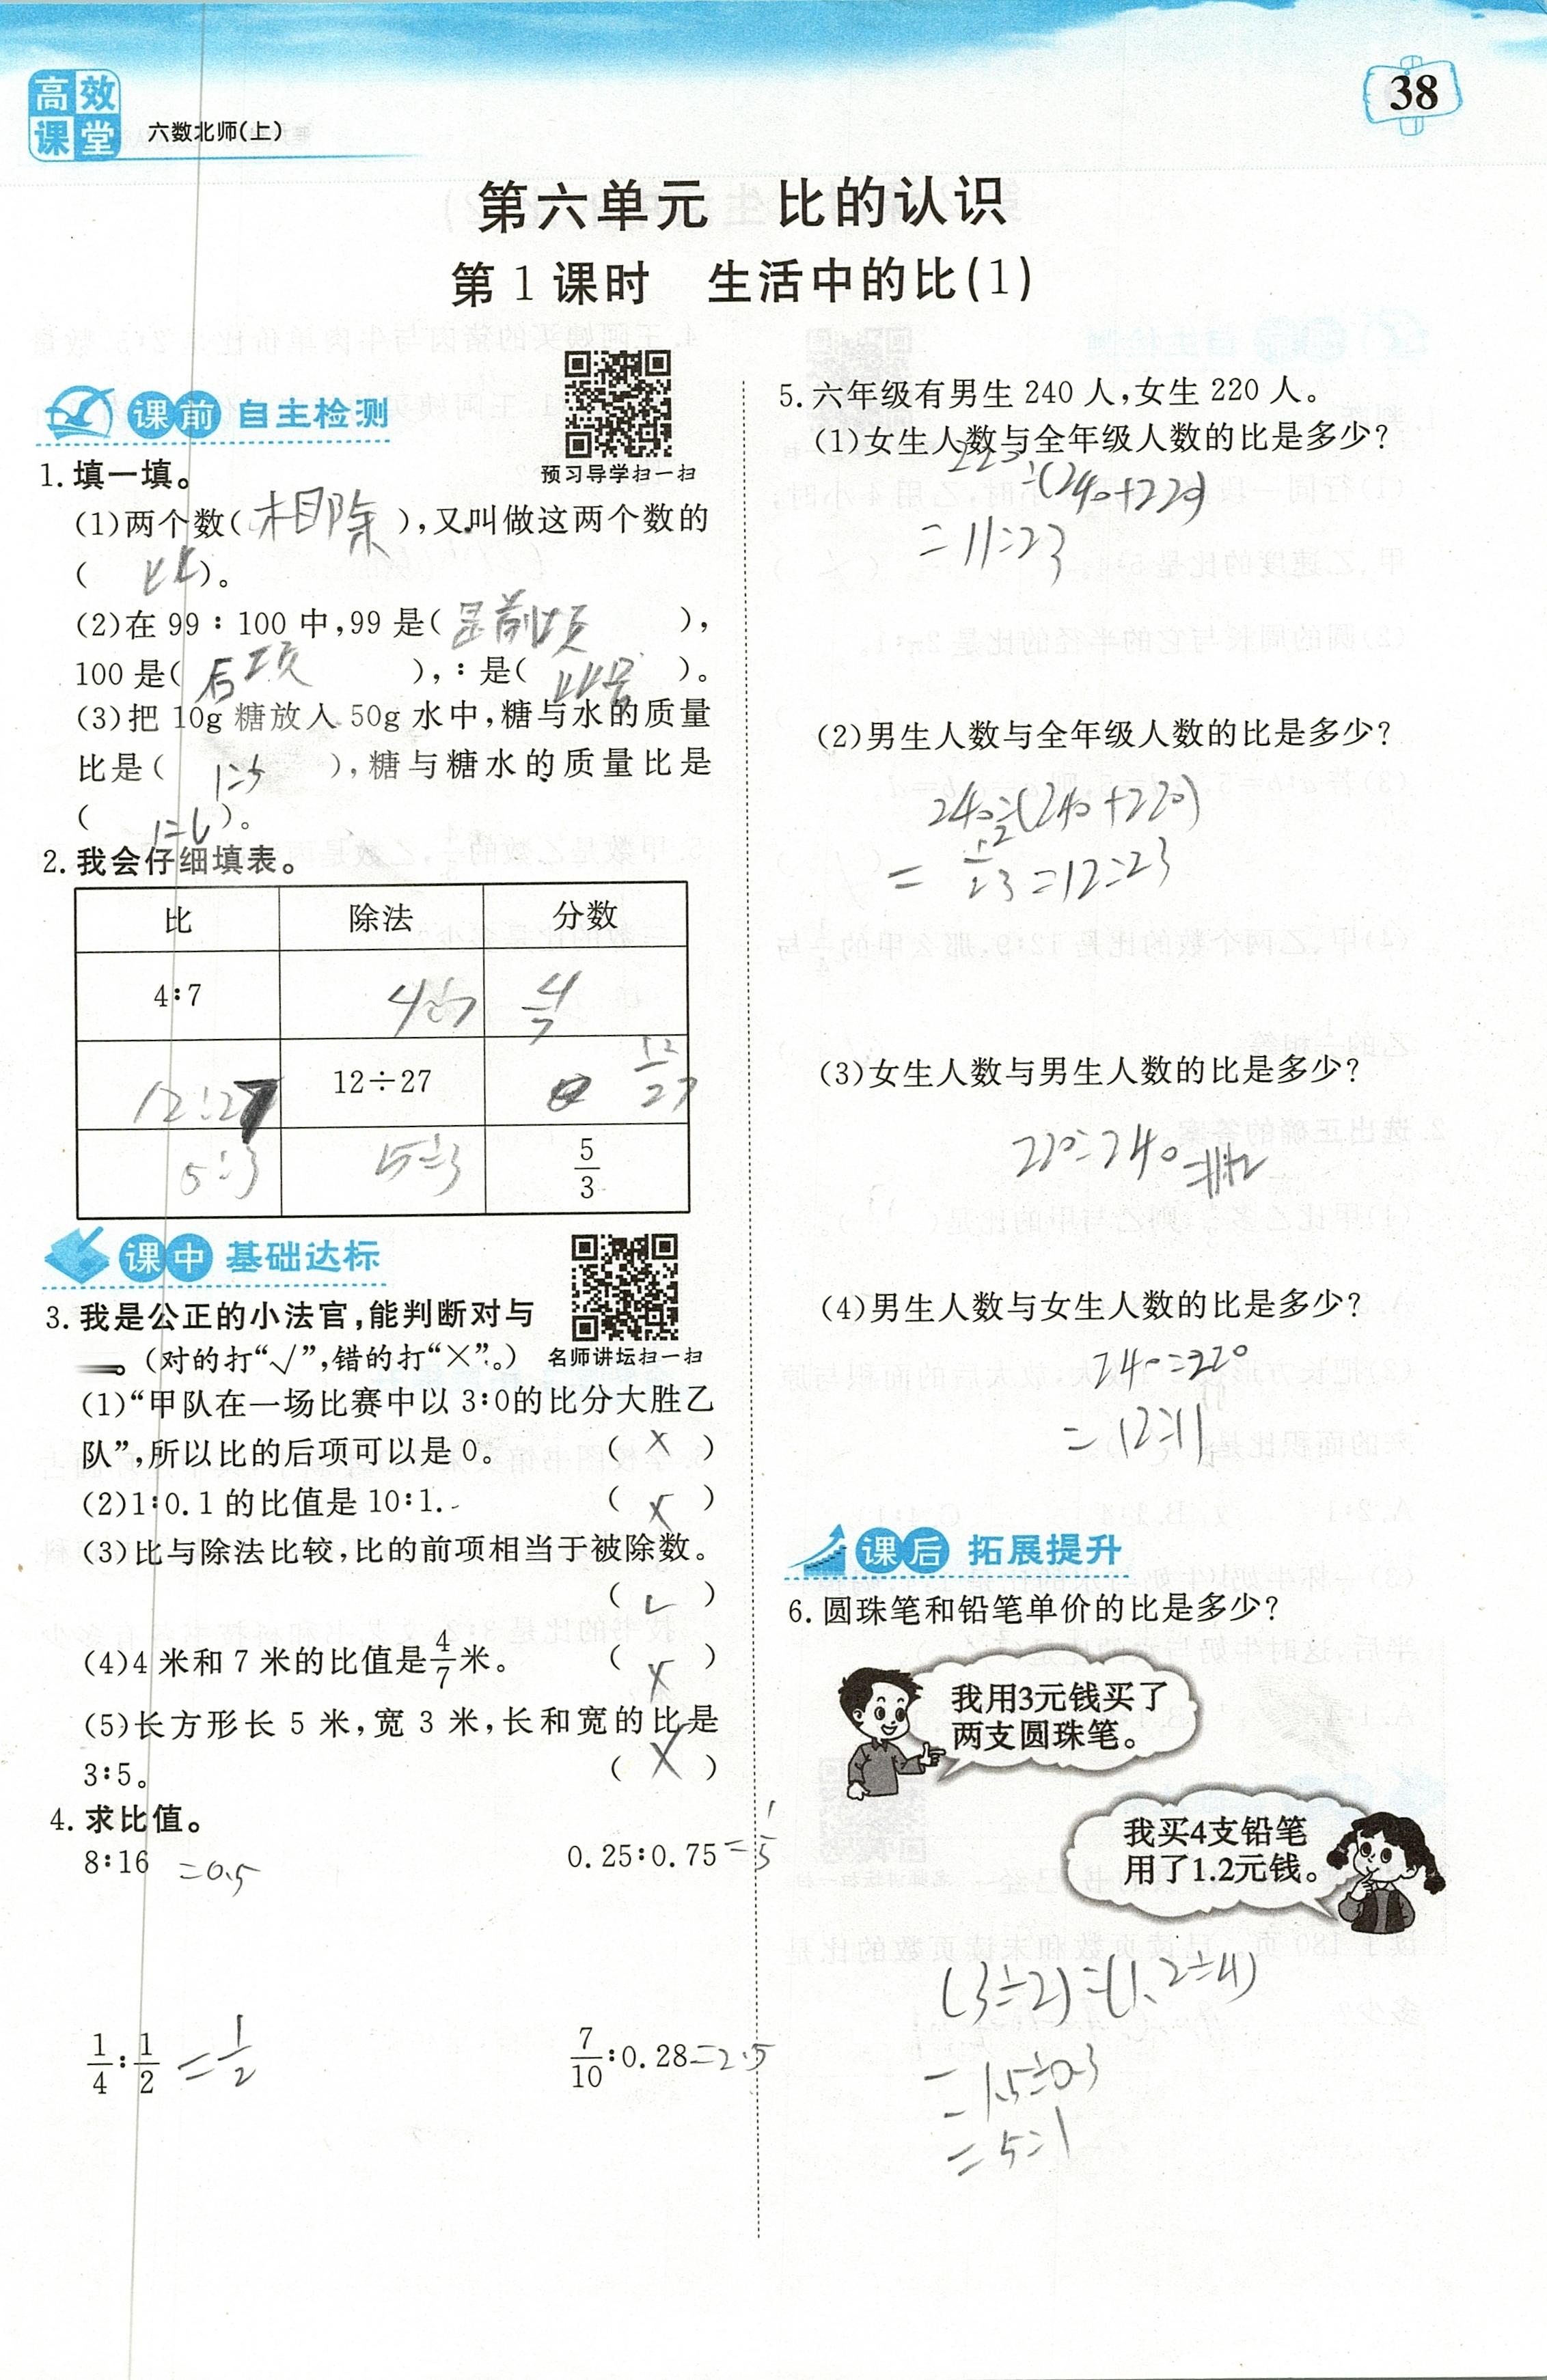 高效
课堂
六数北师(上)
38
第六单元 比的认识
第1课时 生活中的比(1)
课前 自主检测
预习导学扫一扫
1.填一填。
(1)两个数(相除),又叫做这两个数的
(比)。
(2)在99∶100中,99是(是前项),
100是(后项),∶是(比号)。
(3)把10g糖放入50g水中,糖与水的质量
比是(1:5),糖与糖水的质量比是
(1:6)。
2.我会仔细填表。
比 除法 分数
4∶7 4÷7 4/7
12:27 12÷27 12/27
5:3 5÷3 5/3
课中 基础达标
3.我是公正的小法官,能判断对与
。(对的打“√”,错的打“×”。) 名师讲坛扫一扫
(1)“甲队在一场比赛中以3∶0的比分大胜乙
队”,所以比的后项可以是0。 (×)
(2)1∶0.1的比值是10∶1. (×)
(3)比与除法比较,比的前项相当于被除数。
(√)
(4)4米和7米的比值是4/7米。 (×)
(5)长方形长5米,宽3米,长和宽的比是
3∶5。 (×)
4.求比值。
8∶16 =0.5 0.25∶0.75
1/4∶1/2 =1/2 7/10∶0.28=2.5
5.六年级有男生240人,女生220人。
(1)女生人数与全年级人数的比是多少?
220:(240+220)
=11:23
(2)男生人数与全年级人数的比是多少?
240:(240+220)
=12/23=12:23
(3)女生人数与男生人数的比是多少?
220:240=11:12
(4)男生人数与女生人数的比是多少?
240:220
=12:11
课后 拓展提升
6.圆珠笔和铅笔单价的比是多少?
我用3元钱买了
两支圆珠笔。
我买4支铅笔
用了1.2元钱。
(3÷2):(1.2÷4)
=1.5:0.3
=5:1